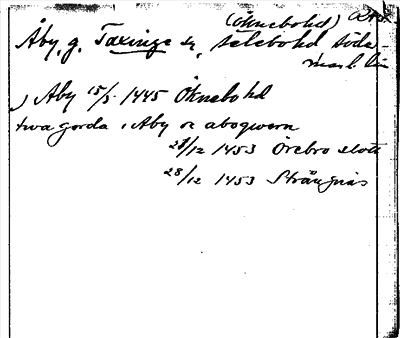 (Öknebohd)
Åby, g. Taxinge sn, Selebohd Söder-
manl. län
, Aby 15/5 1445 Öknebohd
twa gorda i Aby oc aboqwern
28/12 1453 Örebro slott
28/12 1453 Strängnäs